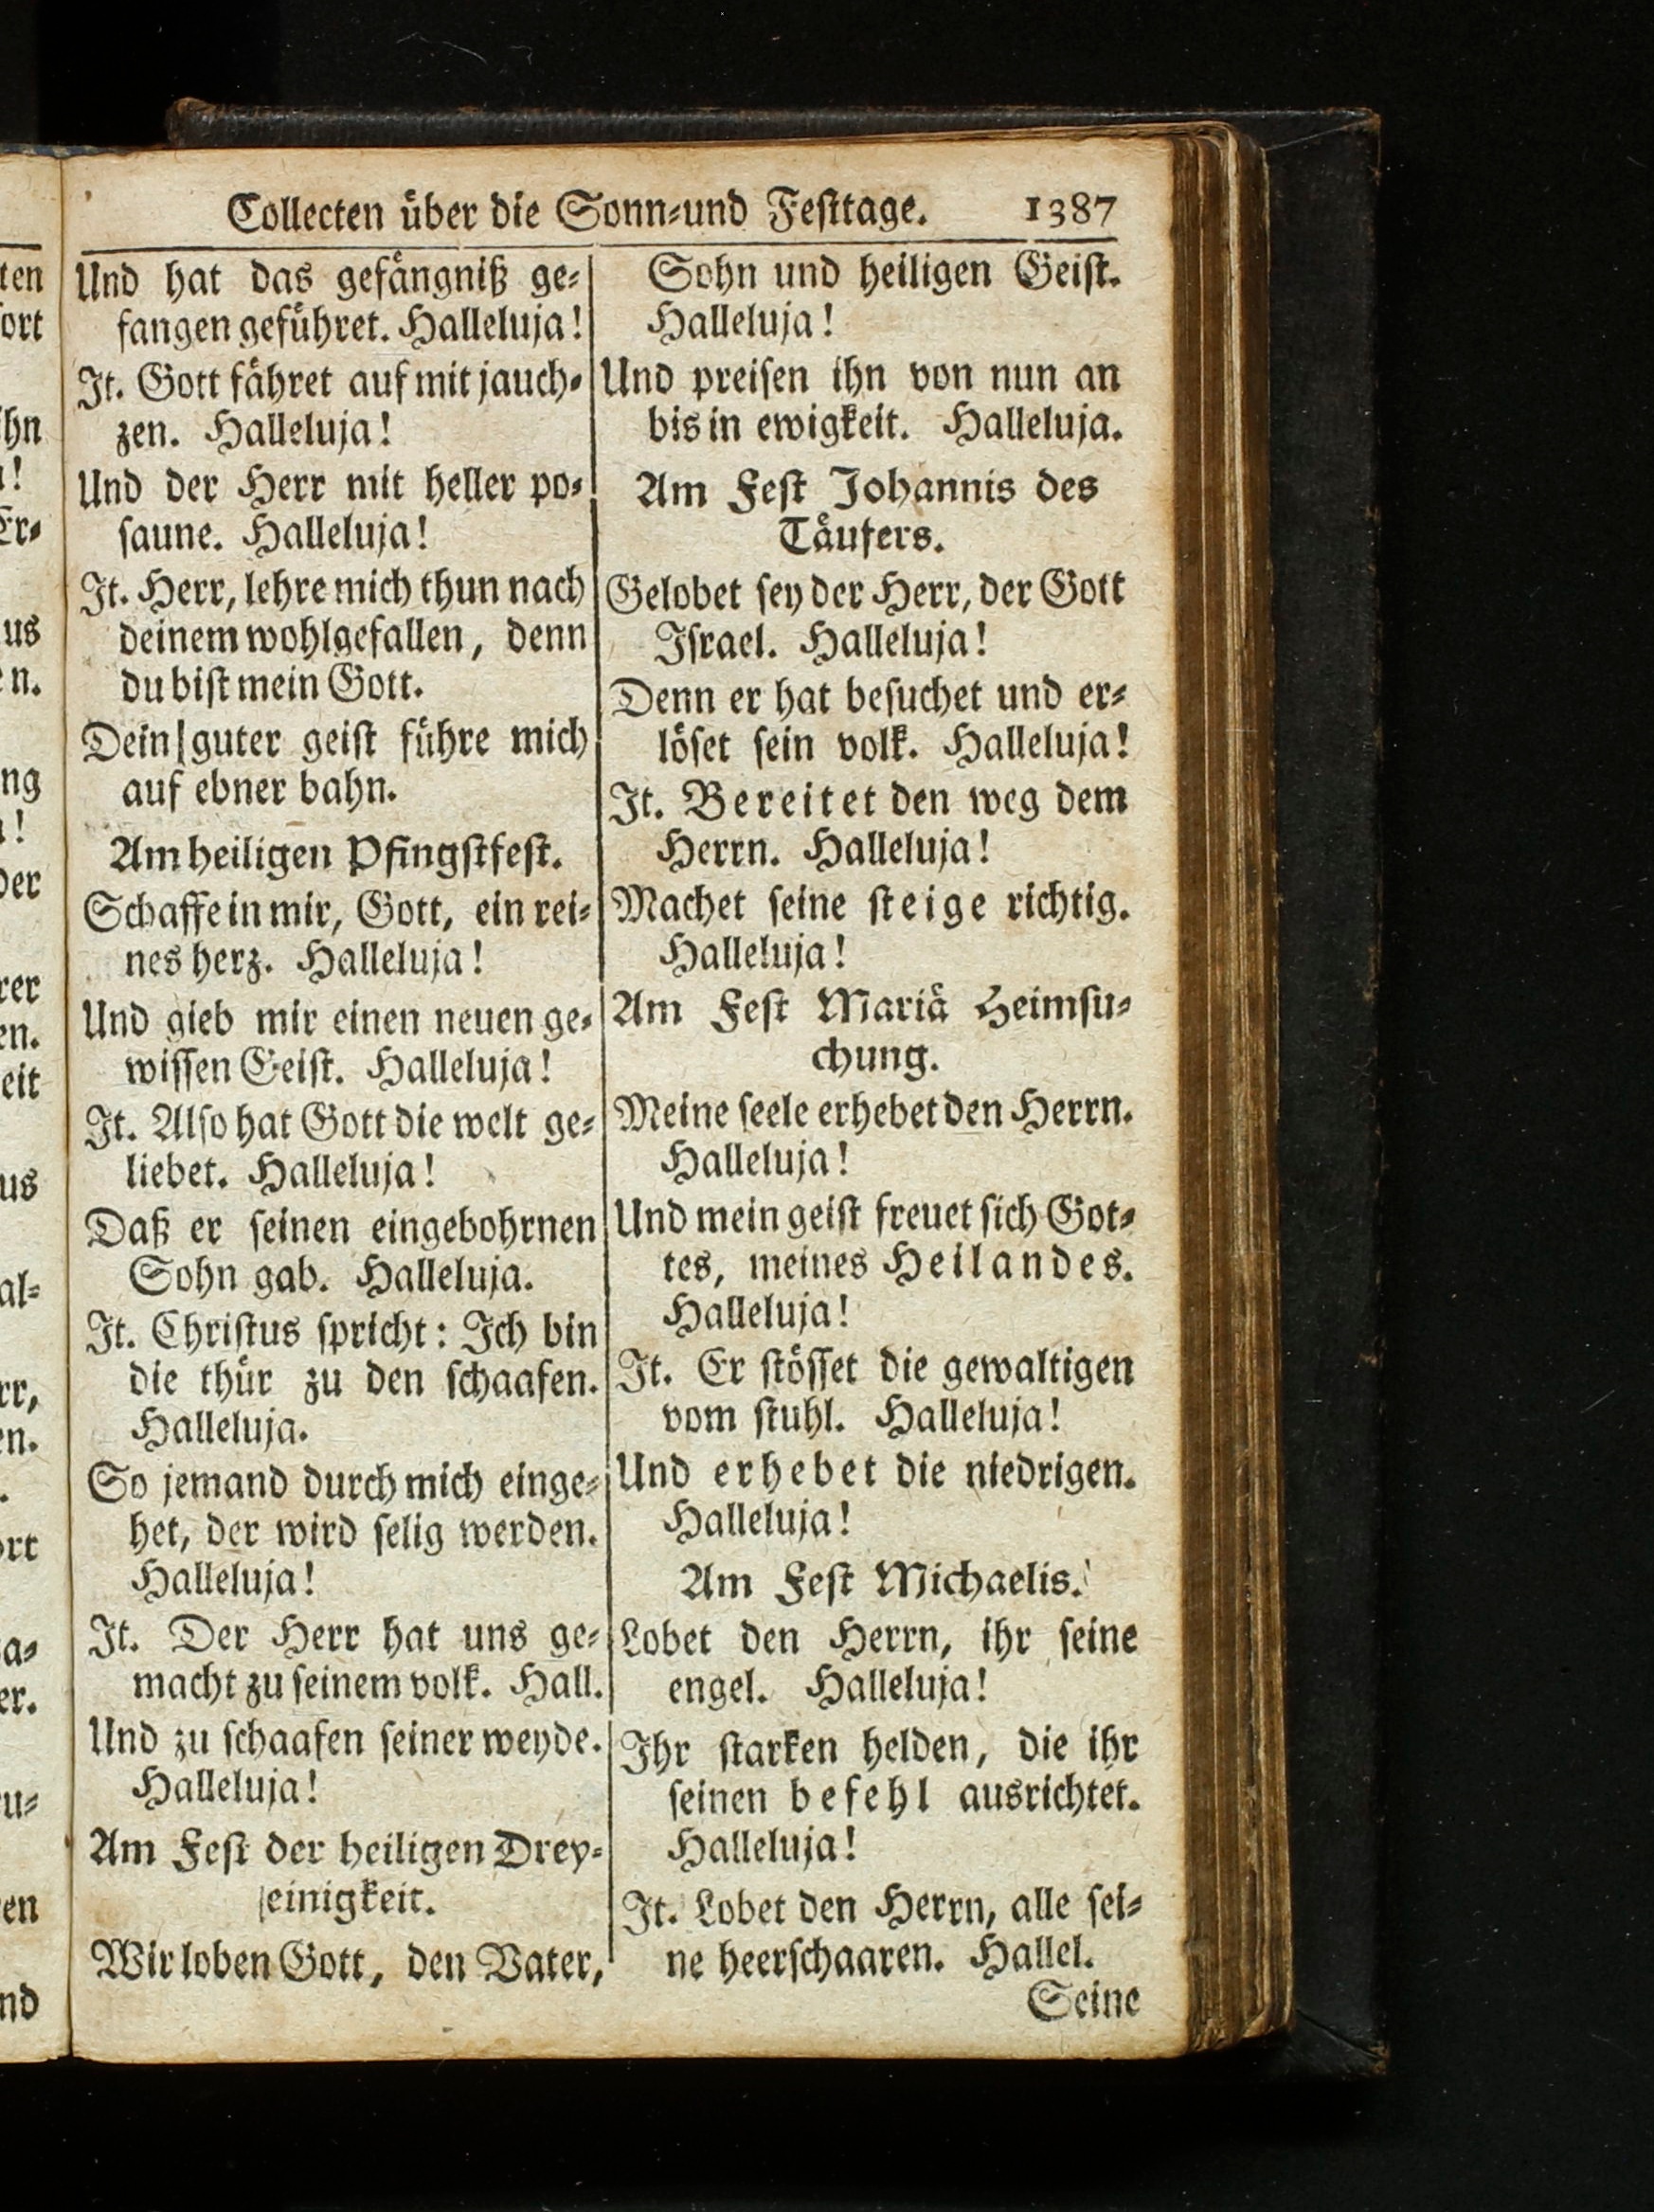 Collecten über die Sonn-und Festtage. 1387
Und hat das gefängniß ge-
fangen geführet. Halleluja!
It. Gott fähret auf mit jauch-
zen. Halleluja!
Und der Herr mit heller po-
saune. Halleluja!
It. Herr, lehre mich thun nach
deinem wohlgefallen, denn
du bist mein Gott.
Dein guter geist führe mich
auf ebner bahn.
Am heiligen Pfingstfest.
Schaffe in mir, Gott, ein rei-
nes herz. Halleluja!
Und gieb mir einen neuen ge-
wissen Geist. Halleluja!
It. Also hat Gott die welt ge-
liebet. Halleluja!
Daß er seinen eingebohrnen
Sohn gab. Halleluja.
It. Christus spricht: Ich bin
die thür zu den schaafen.
Halleluja.
So jemand durch mich einge-
het, der wird selig werden.
Halleluja!
It. Der Herr hat uns ge-
macht zu seinem volk. Hall.
Und zu schaafen seiner weyde.
Halleluja!
Am Fest der heiligen Drey-
einigkeit.
Wir loben Gott, den Vater,
Sohn und heiligen Geist.
Halleluja!
Und preisen ihn von nun an
bis in ewigkeit. Halleluja.
Am Fest Johannis des
Täufers.
Gelobet sey der Herr, der Gott
Israel. Halleluja!
Denn er hat besuchet und er-
löset sein volk. Halleluja!
It. Bereitet den weg dem
Herrn. Halleluja!
Machet seine steige richtig.
Halleluja!
Am Fest Mariä Heimsu-
chung.
Meine seele erhebet den Herrn.
Halleluja!
Und mein geist freuet sich Got-
tes, meines Heilandes.
Halleluja!
It. Er stösset die gewaltigen
vom stuhl. Halleluja!
Und erhebet die niedrigen.
Halleluja!
Am Fest Michaelis.
Lobet den Herrn, ihr seine
engel. Halleluja!
Ihr starken helden, die ihr
seinen befehl ausrichtet.
Halleluja!
It. Lobet den Herrn, alle sei-
ne heerschaaren. Hallel.
Seine